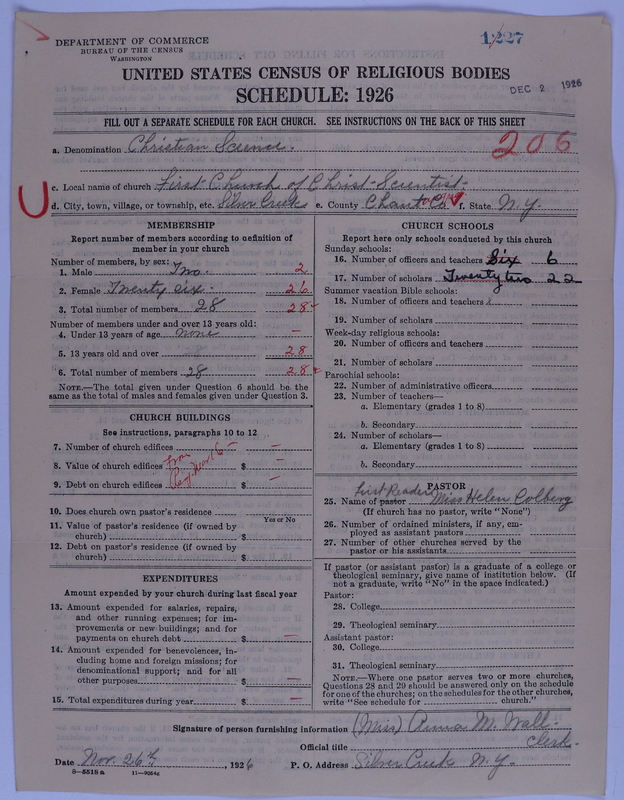 DEPARTMENT OF COMMERCE
BUREAU OF THE CENSUS
WASHINGTON
1/227
UNITED STATES CENSUS OF RELIGIOUS BODIES
SCHEDULE: 1926
DEC 2 1926
FILL OUT A SEPARATE SCHEDULE FOR EACH CHURCH. SEE INSTRUCTIONS ON THE BACK OF THIS SHEET
a. Denomination Christian Science. 206
c. Local name of church First Church of Christ-Scientist-
d. City, town, village, or township, etc. Silver Creek e. County Chaut Co f. State N.Y.
MEMBERSHIP
Report number of members according to definition of member in your church
Number of members, by sex:
1. Male Two. 2
2. Female Twenty six. 26
3. Total number of members 28 28
Number of members under and over 13 years old:
4. Under 13 years of age none –
5. 13 years old and over 28
6. Total number of members 28 28
NOTE.—The total given under Question 6 should be the same as the total of males and females given under Question 3.
CHURCH BUILDINGS
See instructions, paragraphs 10 to 12
7. Number of church edifices –
8. Value of church edifices $ –
9. Debt on church edifices $ –
10. Does church own pastor's residence
Yes or No
11. Value of pastor's residence (if owned by church) $
12. Debt on pastor's residence (if owned by church) $
EXPENDITURES
Amount expended by your church during last fiscal year
13. Amount expended for salaries, repairs, and other running expenses; for improvements or new buildings; and for payments on church debt $ –
14. Amount expended for benevolences, including home and foreign missions; for denominational support; and for all other purposes $ –
15. Total expenditures during year $ –
CHURCH SCHOOLS
Report here only schools conducted by this church
Sunday schools:
16. Number of officers and teachers Six 6
17. Number of scholars Twenty two 22
Summer vacation Bible schools:
18. Number of officers and teachers
19. Number of scholars
Week-day religious schools:
20. Number of officers and teachers
21. Number of scholars
Parochial schools:
22. Number of administrative officers
23. Number of teachers—
a. Elementary (grades 1 to 8)
b. Secondary
24. Number of scholars—
a. Elementary (grades 1 to 8)
b. Secondary
PASTOR
First Reader
25. Name of pastor Miss Helen Colberg
(If church has no pastor, write "None")
26. Number of ordained ministers, if any, employed as assistant pastors
27. Number of other churches served by the pastor or his assistants
If pastor (or assistant pastor) is a graduate of a college or theological seminary, give name of institution below. (If not a graduate, write "No" in the space indicated.)
Pastor:
28. College
29. Theological seminary
Assistant pastor:
30. College
31. Theological seminary
NOTE.—Where one pastor serves two or more churches, Questions 28 and 29 should be answered only on the schedule for one of the churches; on the schedules for the other churches, write "See schedule for church."
Signature of person furnishing information (Miss) Anna M. Wall-
Official title Clerk-
Date Nov. 26th, 1926 P. O. Address Silver Creek N.Y.
8—5518 a 11—9064a